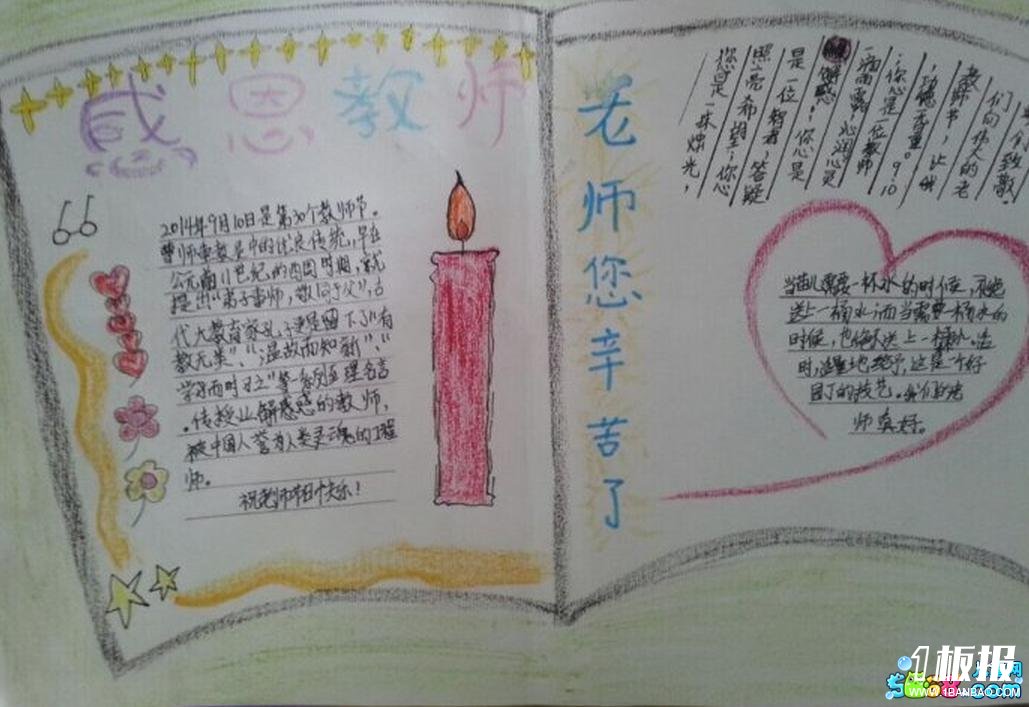 感恩教师
2014年9月10日是第30个教师节。
尊师重教是中的优良传统，早在
公元前11世纪的西周时期，就
提出"弟子事师，敬同于父"，古
代大教育家孔子更是留下了"有
教无类"、"温故而知新"、"
学而时习之"等一系列至理名言
。传授业解惑惑的教师，
被中国人誉为人类灵魂的工程
师。
祝老师节日快乐！
老师您辛苦了
您是一抹烛光，
照亮希望；您
是一位智者，答疑
解惑！您是
雨露，沁润心灵
；您是一位教师
，功德无量。9.10
教师节，让我
们向伟大的老
们致敬
一杯水的时候，不
送上一桶水；而当需要一桶水的
时候，也不送上一杯水。适
时，适量地给予，这是一个好
园丁的技艺。我们的老
师真好。
1板报
WWW.1BANBAO.COM